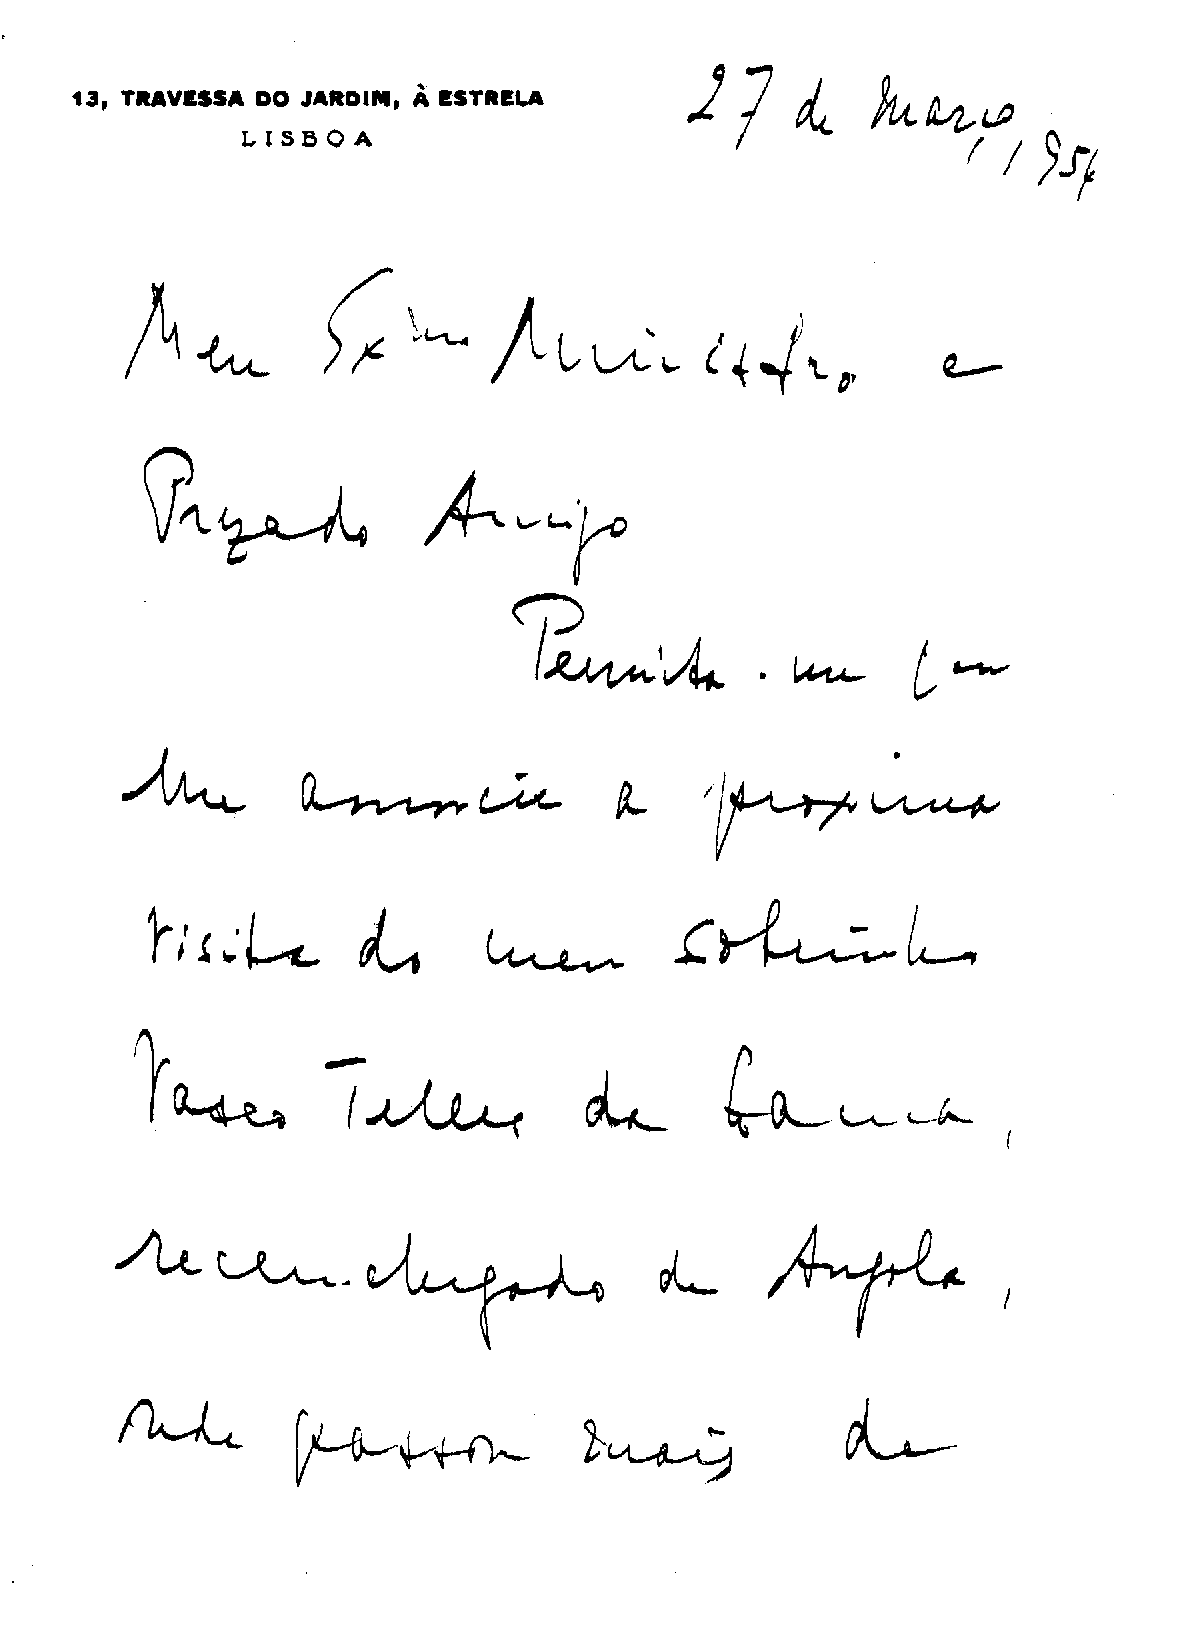 13, TRAVESSA DO JARDIM, À ESTRELA
LISBOA
27 de Março, 1954
Meu Exmo Ministro e
Prezado Amigo
Permita-me que
lhe anuncie a proxima
visita do meu sobrinho
Vasco Telles da Gama,
recem-chegado de Angola,
onde passou mais de